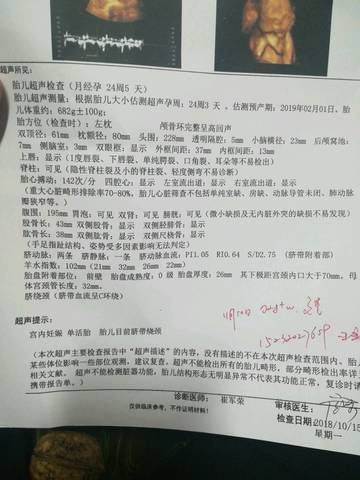 超声所见:
胎儿超声检查(月经孕 24周5 天)
胎儿超声测量:根据胎儿大小估测超声孕周:24周3 天。估测预产期:2019年02月01日。胎
儿体重约:682g±100g;
胎方位(检查时):左枕 颅骨环完整呈高回声
双顶径:61mm 枕额径:80mm 头围:228mm 透明隔腔:5mm 小脑横径:23mm 后颅窝池:
7mm 侧脑室:3mm 双眼眶:显示 外眶间距:37mm 内眶间距:13mm
上唇:显示(I度唇裂、下唇裂、单纯腭裂、口角裂、耳朵等不易检出)
脊柱:可见(隐性脊柱裂及小的脊柱裂、轻度侧弯不易诊断)
胎心搏动:142次/分 四腔心:显示 左室流出道:显示 右室流出道:显示
(重大心脏畸形排除率70-80%,胎儿心脏筛查不包括单纯室缺、房缺、动脉导管未闭、肺动脉
瓣狭窄等。)
腹围:195mm 胃泡:可见 双肾:可见 膀胱:可见(微小缺损及无内脏外突的缺损不易发现)
股骨长:43mm 双侧股骨:显示 双侧胫腓骨:显示
肱骨长:38mm 双侧肱骨:显示 双侧尺桡骨:显示
(手足指趾结构、姿势受多因素影响无法判定)
脐动脉:两条 脐静脉:一条 脐动脉血流:PI1.05 RI0.64 S/D2.75 (脐带附着部)
羊水指数:102mm(21mm 32mm 26mm 22mm)
胎盘附着部位: 前壁 胎盘成熟度:0 级 胎盘厚度:26mm 其下极距宫颈内口大于70mm。母
体宫颈管长度:32mm。
脐绕颈:(脐带血流呈C环绕)
超声提示:
宫内妊娠 单活胎 胎儿目前脐带绕颈
(本次超声主要检查报告中“超声描述”的内容,没有描述的不在本次超声检查范围内。胎儿
某些体位影响一些部位观测,建议复查。超声不能检出所有的胎儿畸形,部分畸形检出率详
相关文献。 超声不能检测脏器功能,胎儿结构形态无明显异常不代表其功能正常,复诊时请
携带报告单。)
诊断医师: 崔军荣 审核医生:
仅供临床参考,不作证明材料! 检查日期:2018/10/15
星期一